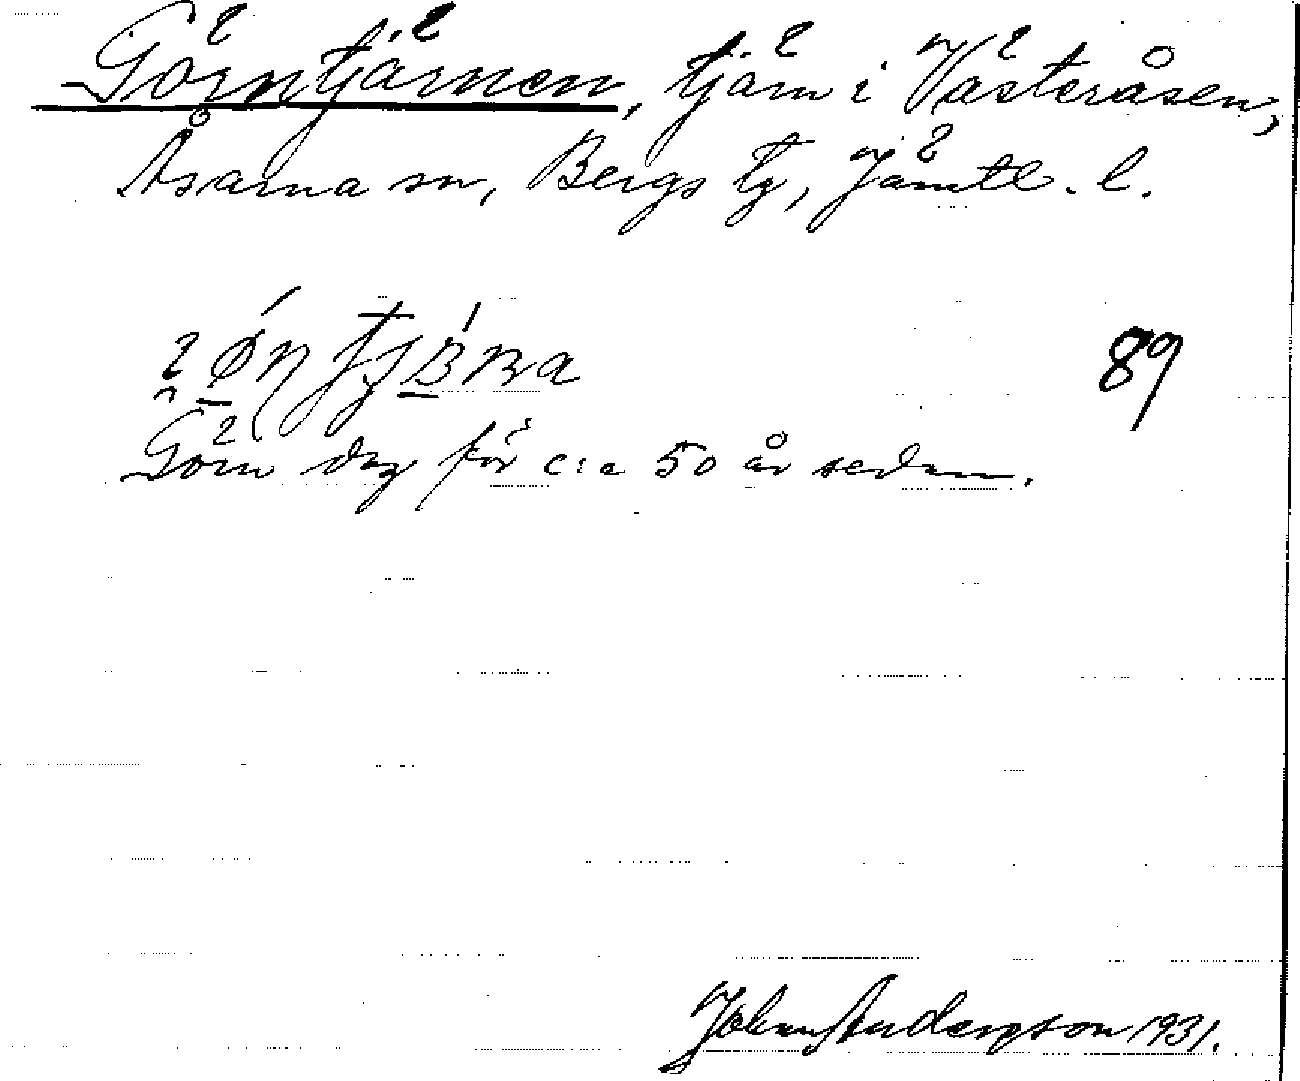 Görntjärnen, tjärn i Västeråsen,
Åsarna sn, Bergs tg, Jämtl. l.
89
Görn dog för c:a 50 år sedan.
Johan Anderson 1931.